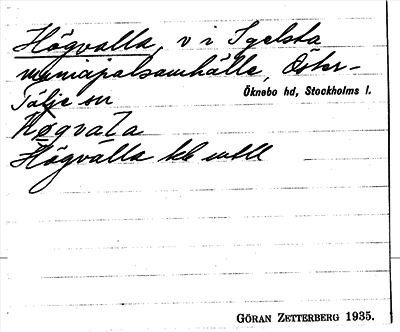 Högvalla, v i Igelsta
municipalsamhälle, Öster-
Tälje sn
Öknebo hd, Stockholms l.
högvala
Högvalla
GÖRAN ZETTERBERG 1935.